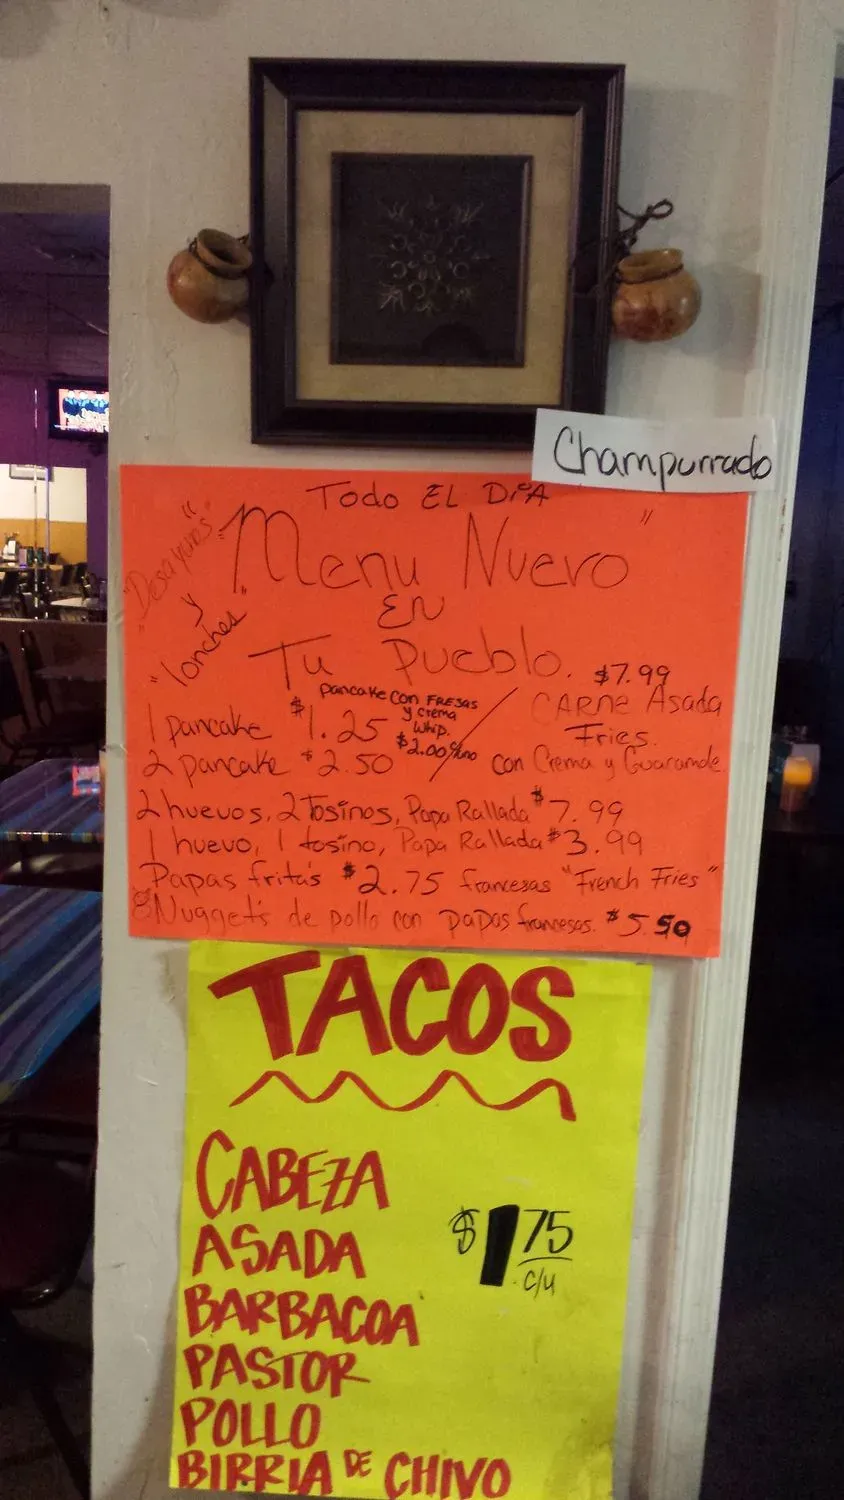 Champurrado
Todo EL DíA
"Desayunos"
y
"lonches"
"Menu Nuevo"
EN
Tu Pueblo.
1 pancake $1.25
2 pancake $2.50
pancake con FRESAS
y crema
whip.
$2.00 c/uno
$7.99
CARNE Asada
Fries.
con Crema y Guacamole
2 huevos, 2 Tosinos, Papa Rallada $7.99
1 huevo, 1 tosino, Papa Rallada $3.99
Papas fritas $2.75 francesas "French Fries"
8 Nugget's de pollo con papas francesas. $5.50
TACOS
CABEZA
ASADA
BARBACOA
PASTOR
POLLO
BIRRIA DE CHIVO
$1 75
c/u